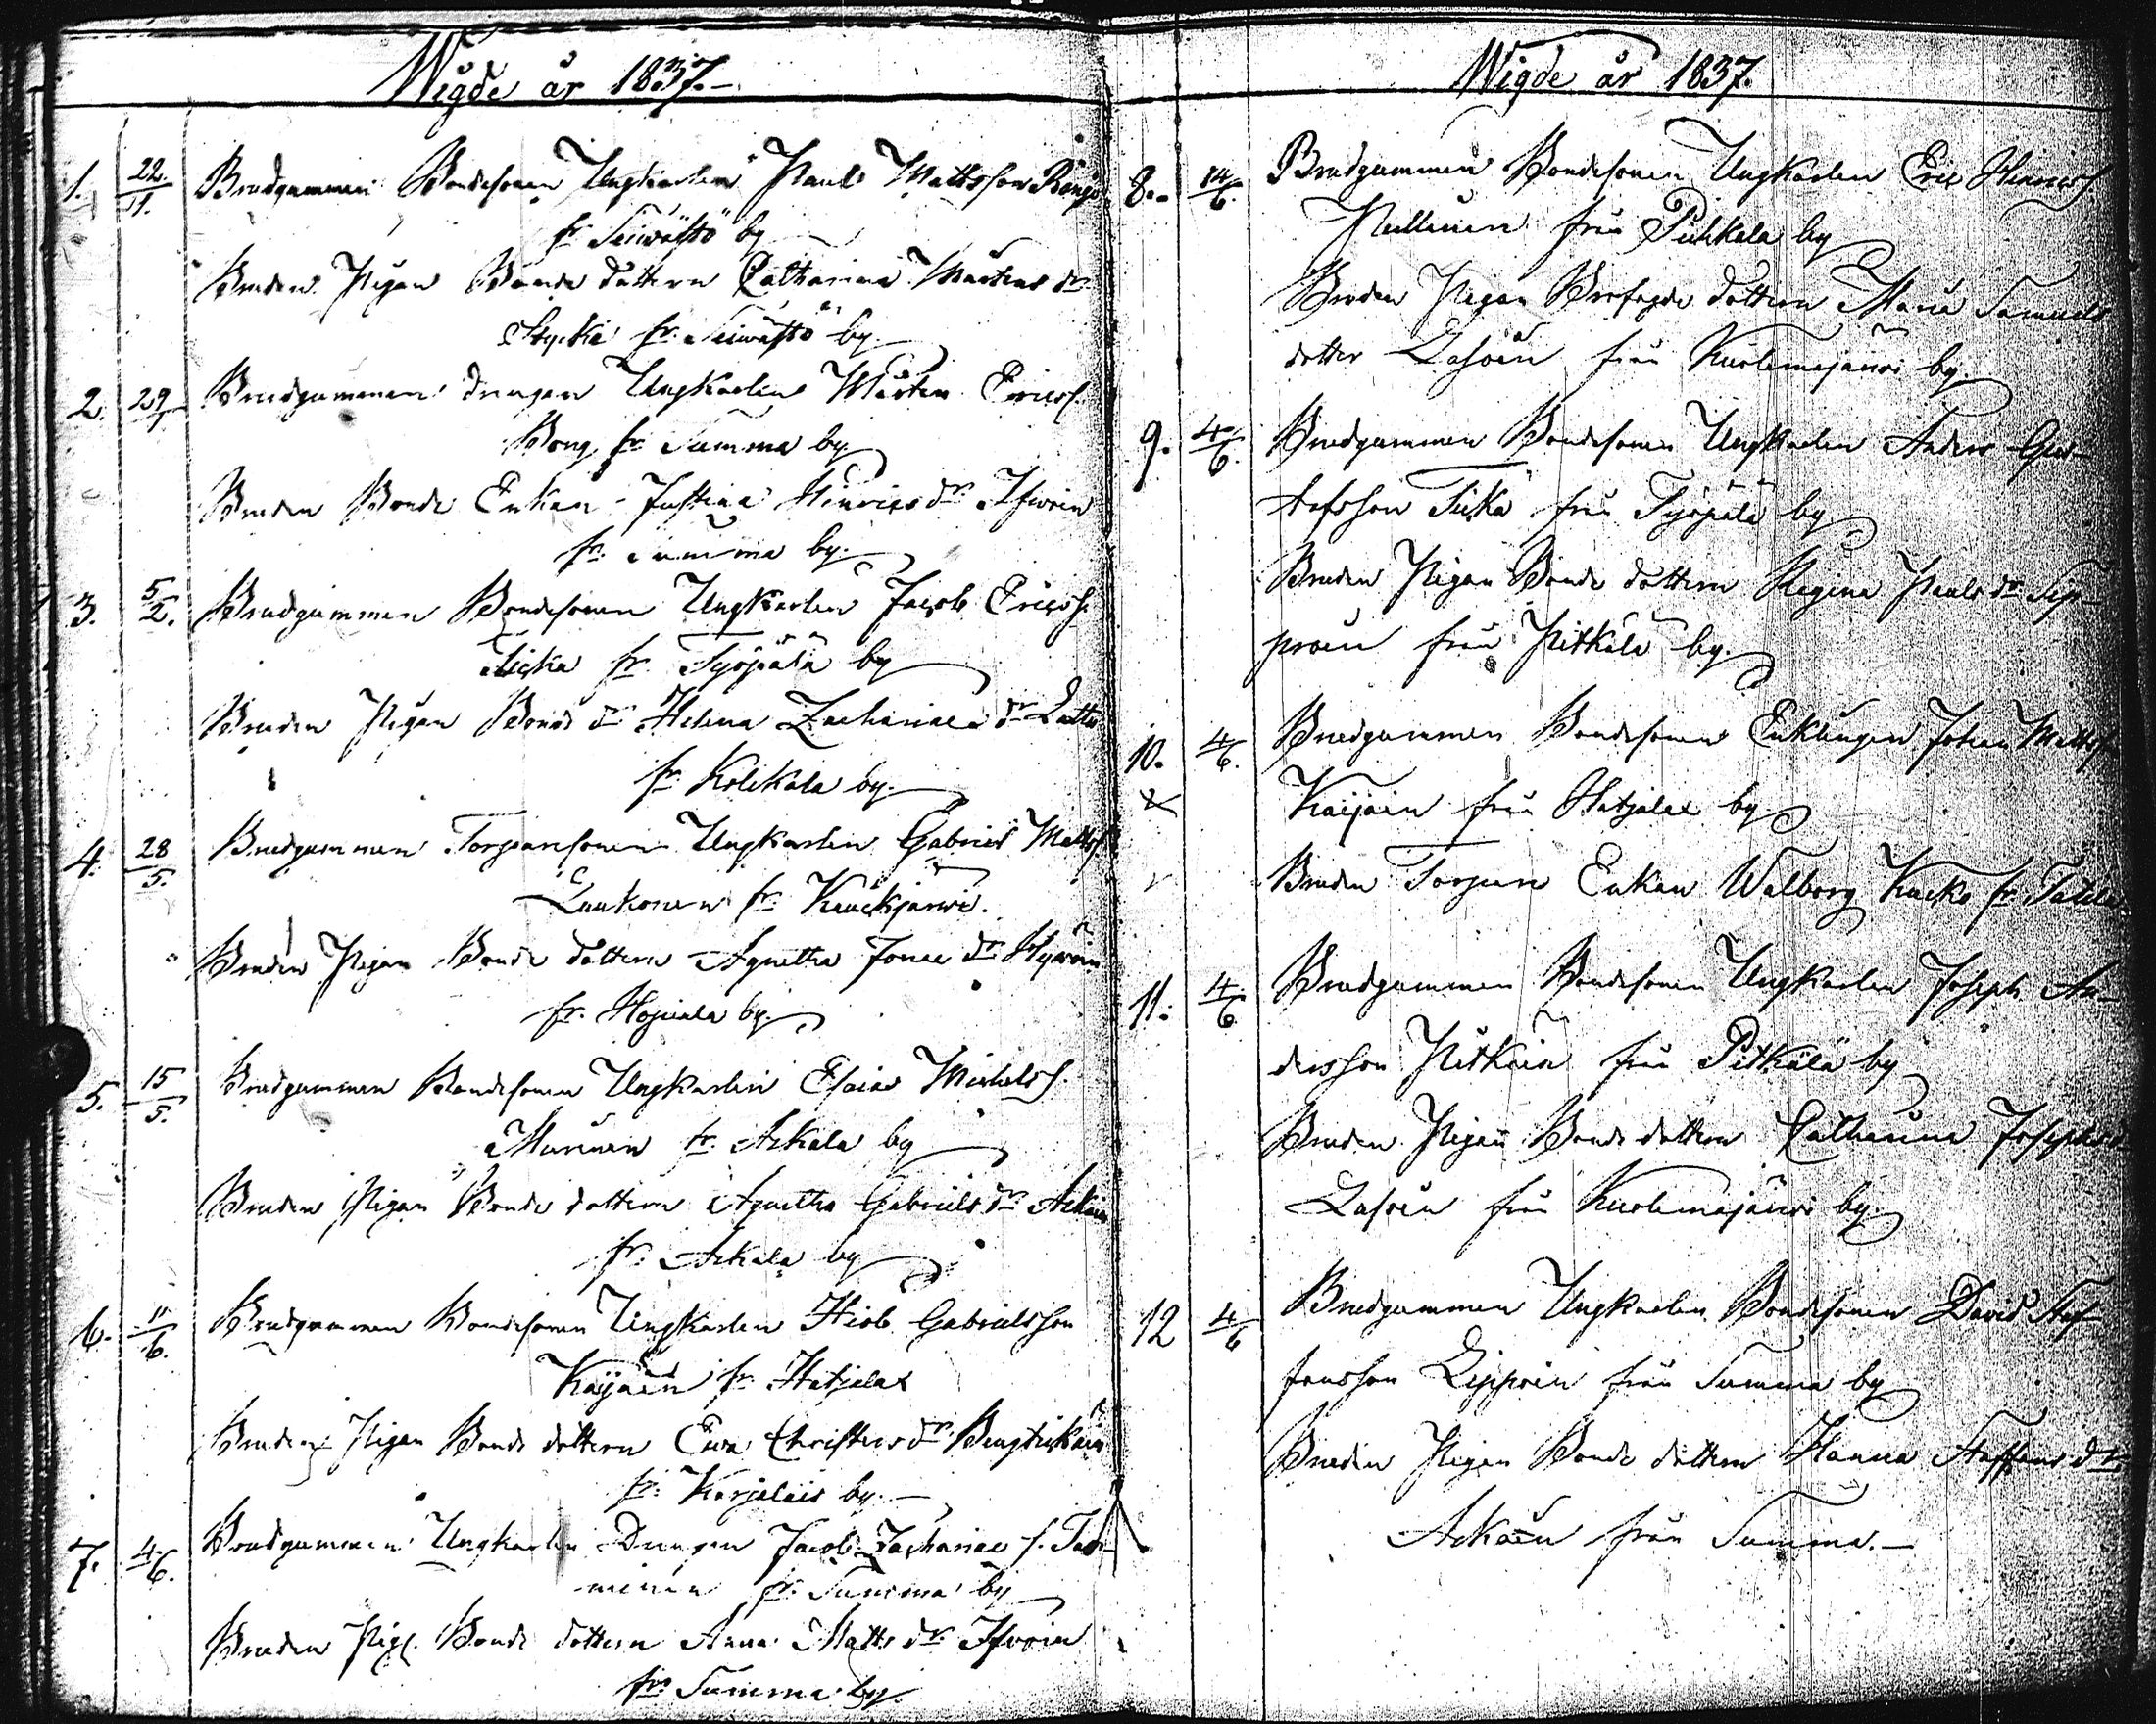 Wigde år 1837.
1. 22/1. Brudgummen Bondesonen Ungkarlen Paul Mattsson
fr. Seiwästö by
Bruden Pigan Bonde dottern Catharina Mårtens dr
Styckä fr. Seiwästö by.
2. 29 Brudgummen drengen Ungkarlen Mårten Ericss.
Bong fr. Summa by
Bruden Bonde Enkan Justina Hinrics dr
fr. Summa by.
3. 5/2. Brudgummen Bondesonen Ungkarlen Jacob Ericss.
Ticka fr. Työpälä by
Bruden Pigan Bond dr Helena Zachariae dr
fr. Kolckala by.
4. 28/5. Brudgummen Torparsonen Ungkarlen Gabriel Matts
Laukonen fr. Kauckjärwi.
Bruden Pigan Bonde dottern Agnetha Jonae dr
fr. by.
5. 15/5. Brudgummen Bondesonen Ungkarlen Esaias Michels s.
Murinen fr. Ackala by
Bruden Pigan Bonde dottern Agnetha Gabriels dr
fr. Ackala by
6. 11/6. Brudgummen Bondesonen Ungkarlen Hiob Gabrielsson
Kaijain fr. Hatjalax
Bruden Pigan Bonde dottern Ewa Christers dr
fr. Karjalais by.
7. 4/6. Brudgummen Ungkarlen Drengen Jacob Zachariae s. Tam-
minen fr. Summa by
Bruden Pig. Bonde dottern Anna Matts dr
fr. Summa by.
Wigde år 1837.
8. 4/6. Brudgummen Bondesonen Ungkarlen Eric Hinricss
från Pihkala by
Bruden Pigan dottern Maria Samuels
dotter Lasoin från Kuolemajärwi by.
9. 4/6. Brudgummen Bondesonen Ungkarlen Anders Gus-
tafsson Ticka från Työpälä by
Bruden Pigan Bonde dottern Regina Pauls dr Sep-
poin från Pitkälä by.
10. 4/6. Brudgummen Bondesonen Enklingen Johan Mattss
Kaijain från Hatjalax by
Bruden Torpare Enkan Walborg Kucko fr.
11. 4/6. Brudgummen Bondesonen Ungkarlen Joseph An-
dersson Pitkäin från Pitkälä by
Bruden Pigan Bonde dottern Catharina Josephs
Lasoin från Kuolemajärwi by
12 4/6 Brudgummen Ungkarlen Bondesonen David Staf-
fansson Lippoin från Summa by
Bruden Pigan Bonde dottern Hanna Staffans dr
Ackain från Summa.